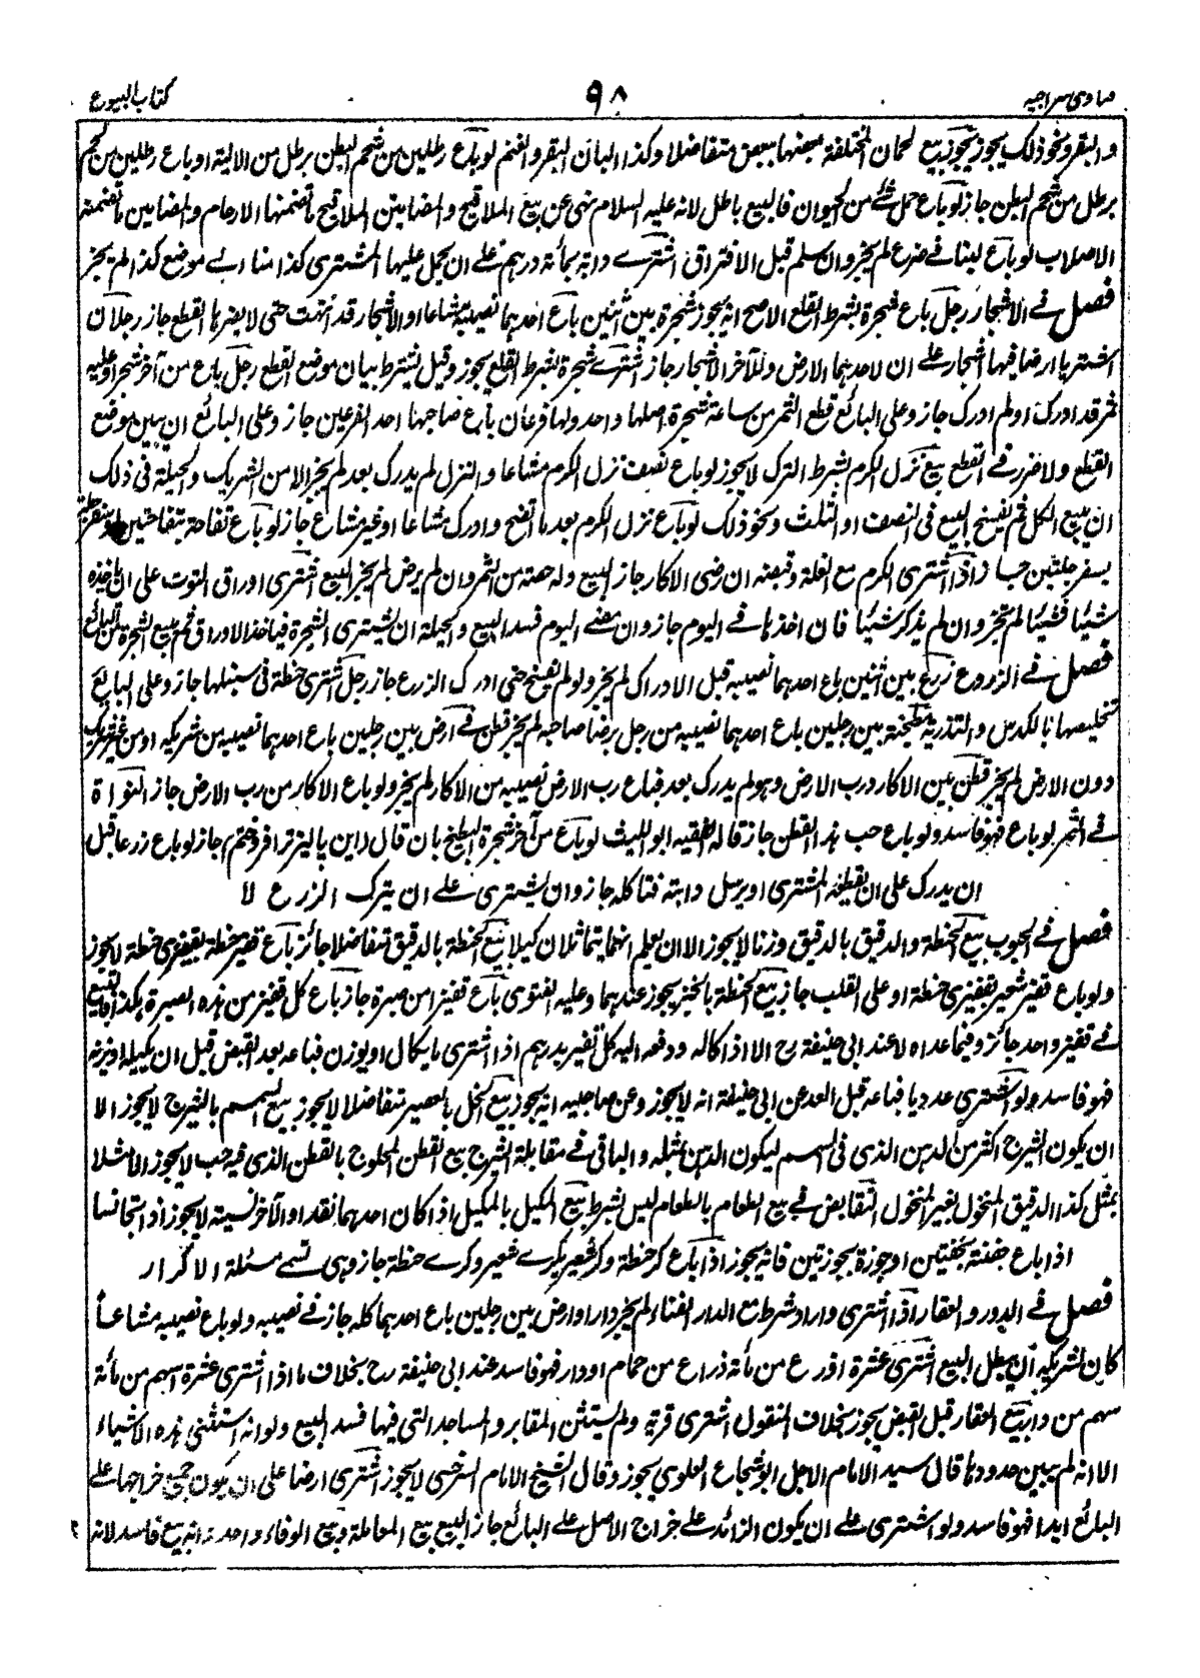 فتاوی سراجیه ۹۸ کتاب البیوع
والبقر ونحو ذلك یجوز یجوز بیع لحمان المختلفة بعضها ببعض متفاضلا وكذا البان البقر والغنم لو باع رطلین من شحم البطن برطل من الالیة او باع رطلین من لحم
برطل من شحم البطن جاز لو باع حمل شئ من الحیوان فالبیع باطل لانه علیه السلام نهی عن بیع الملاقیح والمضامین الملاقیح ما تضمنها الارحام والمضامین ما تضمنته
الاصلاب لو باع لبنا فی ضرع لم یجز وان سلم قبل الافتراق اشتری دابة بمائة درهم علی ان یحمل علیها المشتری كذا منا الی موضع كذا لم یجز
فصل فی الاشجار رجل باع شجرة بشرط القلع الاصح انه یجوز شجرة بین اثنین باع احدهما نصیبه مشاعا والاشجار قد انتهت حتی لا یضرها القطع جاز رجلان
اشتریا ارضا فیها اشجار علی ان لاحدهما الارض وللآخر الاشجار جاز اشتری شجرة بشرط القلع یجوز وقیل یشترط بیان موضع القطع رجل باع من آخر شجرا وعلیه
ثمر قد ادرك او لم ادرك جاز وعلی البائع قطع الثمر من ساعة شجرة اصلها واحد ولها فرعان باع صاحبها احد الفرعین جاز وعلی البائع ان یبین موضع
القطع ولا ضرر فی القطع بیع نزل الكرم بشرط الترك لا یجوز لو باع نصف نزل الكرم مشاعا والنزل لم یدرك بعد لم یجز الا من الشریك والحیلة فی ذلك
ان یبیع الكل ثم یفسخ البیع فی النصف او الثلث ونحو ذلك لو باع نزل الكرم بعد ما اتضح وادرك مشاعا او غیر مشاع جاز لو باع تفاحة بتفاحتین
اذا اشتری الكرم مع الغلة وقبضه ان رضی الاكار جاز البیع وله حصته من الثمر وان لم یرض لم یجز البیع اشتری اوراق التوت علی ان یاخذه
شیئا فشیئا لم یجز وان لم یذكر شیئا فان اخذها فی الیوم جاز وان مضی الیوم فسد البیع والحیلة ان یشتری الشجرة فیاخذ الاوراق ثم یبیع الشجرة من البائع
فصل فی الزروع زرع بین اثنین باع احدهما نصیبه قبل الادراك لم یجز ولو لم یفسخ حتی ادرك الزرع جاز رجل اشتری حنطة فی سنبلها جاز وعلی البائع
تخلیصها بالكدس والتذریة مطبخة بین رجلین باع احدهما نصیبه من رجل برضا صاحبه لم یجز قطن فی ارض بین رجلین باع احدهما نصیبه من شریكه او من غیر شریك
دون الارض لم یجز قطن بین الاكار ورب الارض وهو لم یدرك بعد فباع رب الارض نصیبه من الاكار لم یجز ولو باع الاكار من رب الارض جاز النواة
فی الثمر لو باع فهو فاسد ولو باع حب هذا القطن جاز قاله الفقیه ابو اللیث لو باع من آخر شجرة البطیخ بان قال این پالیز ترا فروختم جاز لو باع زرعا قبل
ان یدرك علی ان یقطعه المشتری او یرسل دابته فتاكله جاز وان یشتری علی ان یترك الزرع لا
فصل فی الحبوب بیع الحنطة والدقیق بالدقیق وزنا لا یجوز الا ان یعلم انهما یتماثلان كیلا بیع الحنطة بالدقیق متفاضلا جائز باع قفیز حنطة بقفیزی حنطة لا یجوز
ولو باع قفیز شعیر بقفیزی حنطة او علی القلب جاز بیع الحنطة بالخبز یجوز عندهما وعلیه الفتوی باع قفیزا من صبرة جاز باع كل قفیز من هذه الصبرة بكذا فالبیع
فی قفیز واحد جائز وفیما عداه لا عند ابی حنیفة رح الا اذا كاله ودفعه الیه كل قفیز بدرهم اذا اشتری ما یكال او یوزن فباعه بعد القبض قبل ان یكیله او یزنه
فهو فاسد ولو اشتری عددیا فباعه قبل العد عن ابی حنیفة انه لا یجوز وعن صاحبیه انه یجوز بیع الخل بالعصیر متفاضلا لا یجوز بیع السمسم بالشیرج لا یجوز الا
ان یكون الشیرج اكثر من الدهن الذی فی السمسم لیكون الدهن بمثله والباقی فی مقابلة الشیرج بیع القطن المحلوج بالقطن الذی فیه حب لا یجوز الا مثلا
بمثل كذا الدقیق المنخول بغیر المنخول التقابض فی بیع الطعام بالطعام لیس بشرط بیع المكیل بالمكیل اذا كان احدهما نقدا والآخر نسیئة لا یجوز اذا تجانسا
اذا باع حفنة بحفنتین او جوزة بجوزتین فانه یجوز اذا باع كر حنطة وكر شعیر بكری شعیر وكری حنطة جاز وهی تسمی مسئلة الاكرار
فصل فی الدور والعقار اذا اشتری دارا وشرط مع الدار الفناء لم یجز دار او ارض بین رجلین باع احدهما كله جاز فی نصیبه ولو باع نصیبه مشاعا
كان لشریكه ان یبطل البیع اشتری عشرة اذرع من مائة ذراع من حمام او دار فهو فاسد عند ابی حنیفة رح بخلاف ما اذا اشتری عشرة اسهم من مائة
سهم من دار بیع العقار قبل القبض یجوز بخلاف المنقول اشتری قریة ولم یستثن المقابر والمساجد التی فیها فسد البیع ولو انه استثنی هذه الاشیاء
الا انه لم یبین حدودها قال سید الامام الاجل ابو شجاع العلوی یجوز وقال الشیخ الامام السرخسی لا یجوز اشتری ارضا علی ان یكون جمیع خراجها علی
البائع ابدا فهو فاسد ولو اشتری علی ان یكون الزائد علی خراج الاصل علی البائع جاز البیع بیع المعاملة وبیع الوفاء واحد انه بیع فاسد لانه